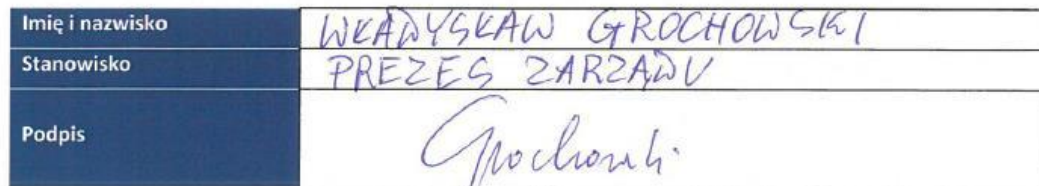 Imię i nazwisko WŁADYSŁAW GROCHOWSKI
Stanowisko PREZES ZARZĄDU
Podpis Grochowski